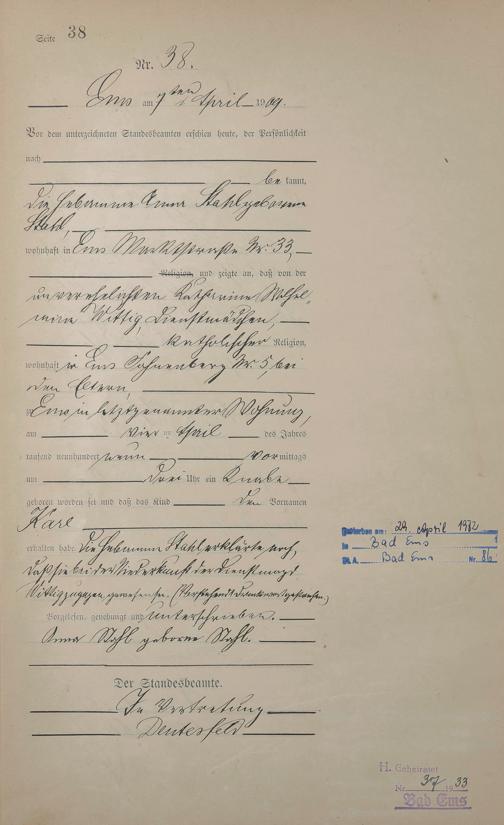 Seite 38
Nr. 38.
Ems am 7ten April 1909.
Vor dem unterzeichneten Standesbeamten erschien heute, der Persönlichkeit
nach
be kannt,
die Hebamme Anna Stahl geborene
Stahl,
wohnhaft in Ems Marktstraße Nr. 33,
Religion, und zeigte an, daß von der
unverehelichten Katharine Wilhel-
mine Wittig, Dienstmädchen,
katholischer Religion,
wohnhaft in Ems Nr. 5, bei
den Eltern,
zu Ems in letztgenannter Wohnung,
am vier ten April des Jahres
tausend neunhundert neun Vor mittags
um drei Uhr ein Knabe
geboren worden sei und daß das Kind den Vornamen
Karl
erhalten habe. Die Hebamme Stahl erklärte noch,
daß sie bei der Niederkunft der Dienstmagd
Wittig zugegen gewesen sei.
Vorgelesen, genehmigt und unterschrieben.
Anna Stahl geborene Stahl.
Der Standesbeamte.
In Vertretung
Gestorben am: 29. April 1982
in Bad Ems
St.A. Bad Ems Nr. 86
H. Geheiratet
Nr. 37 1933
Bad Ems